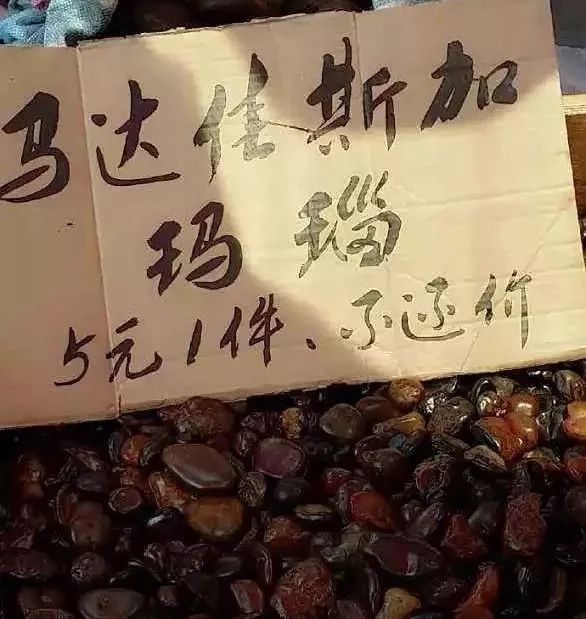 马达佳斯加
玛瑙
5元1件、不还价